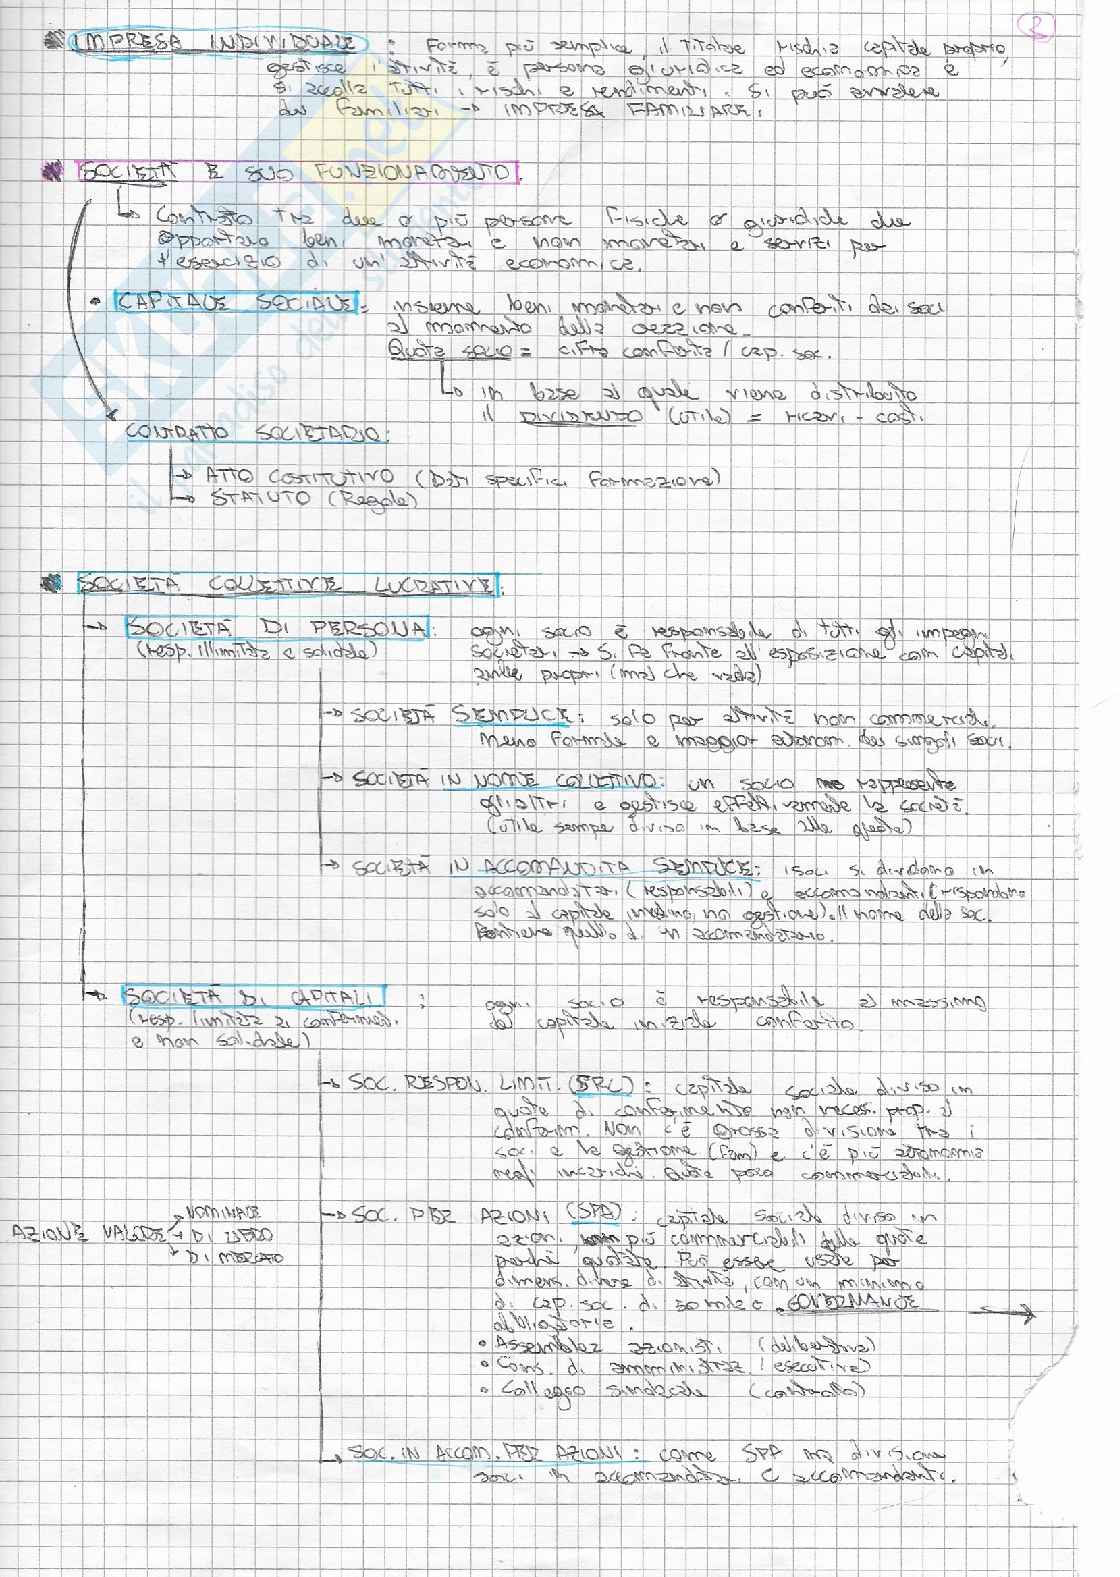 2
IMPRESA INDIVIDUALE : Forma più semplice, il titolare rischia capitale proprio,
gestisce l'attività, è persona giuridica ed economica e
si accolla tutti i rischi e rendimenti. Si può avvalere
dei familiari → IMPRESA FAMILIARE.
SOCIETÀ E SUO FUNZIONAMENTO.
Contratto tra due o più persone fisiche o giuridiche che
apportano beni monetari e non monetari e servizi per
l'esercizio di un'attività economica.
• CAPITALE SOCIALE: insieme beni monetari e non conferiti dei soci
al momento della creazione.
Quota socio = cifra conferita / cap. soc.
in base al quale viene distribuito
il DIVIDENDO (utile) = ricavi - costi.
CONTRATTO SOCIETARIO:
→ ATTO COSTITUTIVO (Dati specifici formazione)
→ STATUTO (Regole)
SOCIETÀ COLLETTIVE LUCRATIVE:
→ SOCIETÀ DI PERSONA: ogni socio è responsabile di tutti gli impegni
(resp. illimitata e solidale) societari → Si fa fronte all'esposizione con capitali
anche propri (mal che vada)
→ SOCIETÀ SEMPLICE: solo per attività non commerciali.
Meno formale e maggior autonom. dei singoli soci.
→ SOCIETÀ IN NOME COLLETTIVO: un socio rappresenta
gli altri e gestisce effettivamente la società.
(utile sempre diviso in base alla quota)
→ SOCIETÀ IN ACCOMANDITA SEMPLICE: i soci si dividono in
accomanditari (responsabili) e accomandanti (rispondono
solo al capitale, no gestione). Il nome della soc.
contiene quello di un accomandatario.
→ SOCIETÀ DI CAPITALI : ogni socio è responsabile al massimo
(resp. limitata ai conferimenti del capitale iniziale conferito
e non solidale)
→ SOC. RESPON. LIMIT. (SRL): capitale sociale diviso in
quote di conferimento non neces. prop. al
conferim. Non c'è grossa divisione tra i
soci e la gestione (fam) e c'è più autonomia
negli incarichi. Quote poco commerciabili.
→ SOC. PER AZIONI (SPA): capitale sociale diviso in
azioni, più commerciabili delle quote
perché quotate. Può essere usata per
dimens. diverse di attività, con un minimo
di cap. soc. di 50 mila €. GOVERNANCE →
obbligatoria.
• Assemblea azionisti (deliberativa)
• Cons. di amministraz. (esecutiva)
• Collegio sindacale (controllo)
AZIONE VALORE → NOMINALE
→ DI LIBRO
→ DI MERCATO
→ SOC. IN ACCOM. PER AZIONI: come SPA ma divisione
soci in accomanditar. e accomandanti.